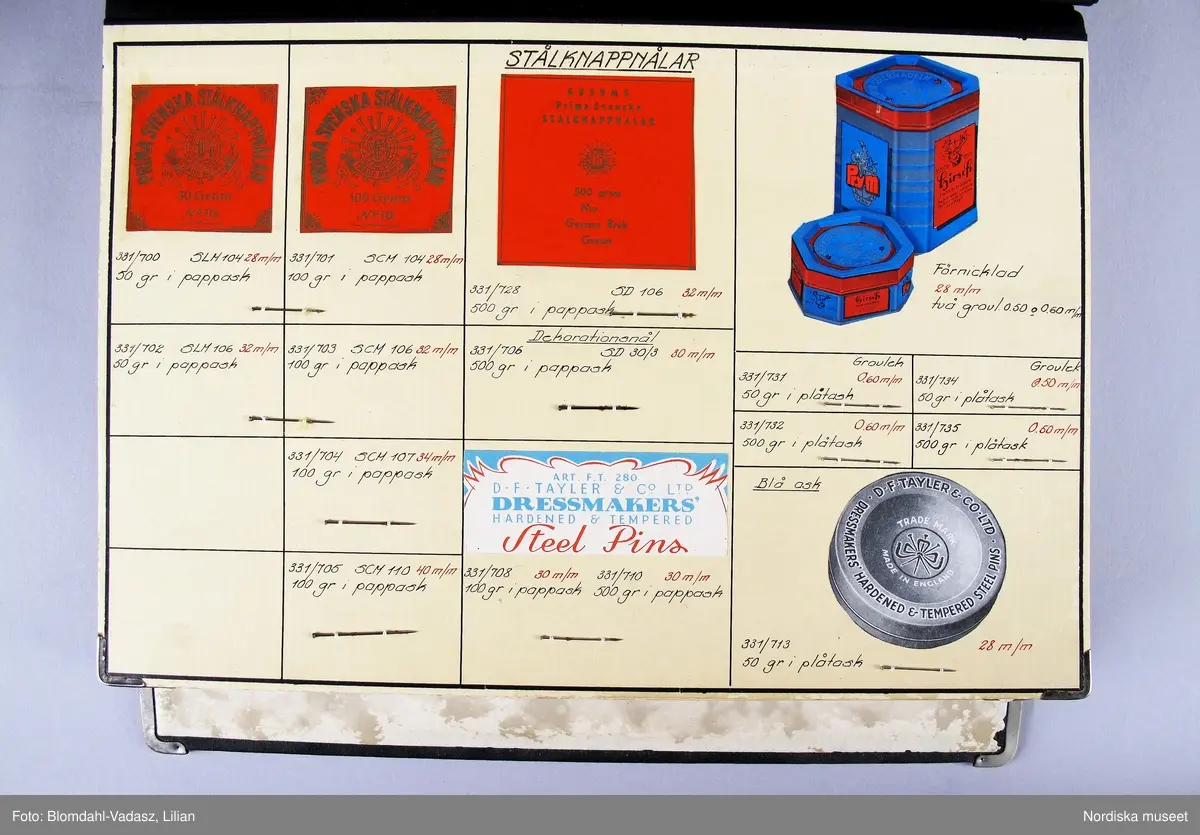 STÅLKNAPPNÅLAR
PRIMA SVENSKA STÅLKNAPPNÅLAR
50 Gram
331/700 SLM 104 28m/m
50 gr i pappask
PRIMA SVENSKA STÅLKNAPPNÅLAR
100 Gram
331/701 SCM 104 28m/m
100 gr i pappask
331/702 SLM 106 32m/m
50 gr i pappask
331/703 SCM 106 32m/m
100 gr i pappask
331/704 SCM 107 34m/m
100 gr i pappask
331/705 SCM 110 40m/m
100 gr i pappask
GUSUMS
Prima Svenska
STÅLKNAPPNÅLAR
500 gram
331/728 SD 106 32m/m
500 gr i pappask
Dekorationsnål
331/706 SD 30/3 30 m/m
500 gr i pappask
ART. F.T. 280
D·F·TAYLER & CO LTD
DRESSMAKERS'
HARDENED & TEMPERED
Steel Pins
331/708 30 m/m
100 gr i pappask
331/710 30 m/m
500 gr i pappask
Prym
Hirsch
Hirsch
Förnicklad
28 m/m
två grovl. 0.50 o 0.60 m/m
Grovlek
331/731 0.60m/m
50 gr i plåtask
Grovlek
331/734 0.50 m/m
50 gr i plåtask
331/732 0.60m/m
500 gr i plåtask
331/735 0.50 m/m
500 gr i plåtask
Blå ask
D·F·TAYLER & CO·LTD
DRESSMAKERS' HARDENED & TEMPERED STEEL PINS
TRADE MARK
MADE IN ENGLAND
331/713 28 m/m
50 gr i plåtask
Foto: Blomdahl-Vadasz, Lilian
Nordiska museet